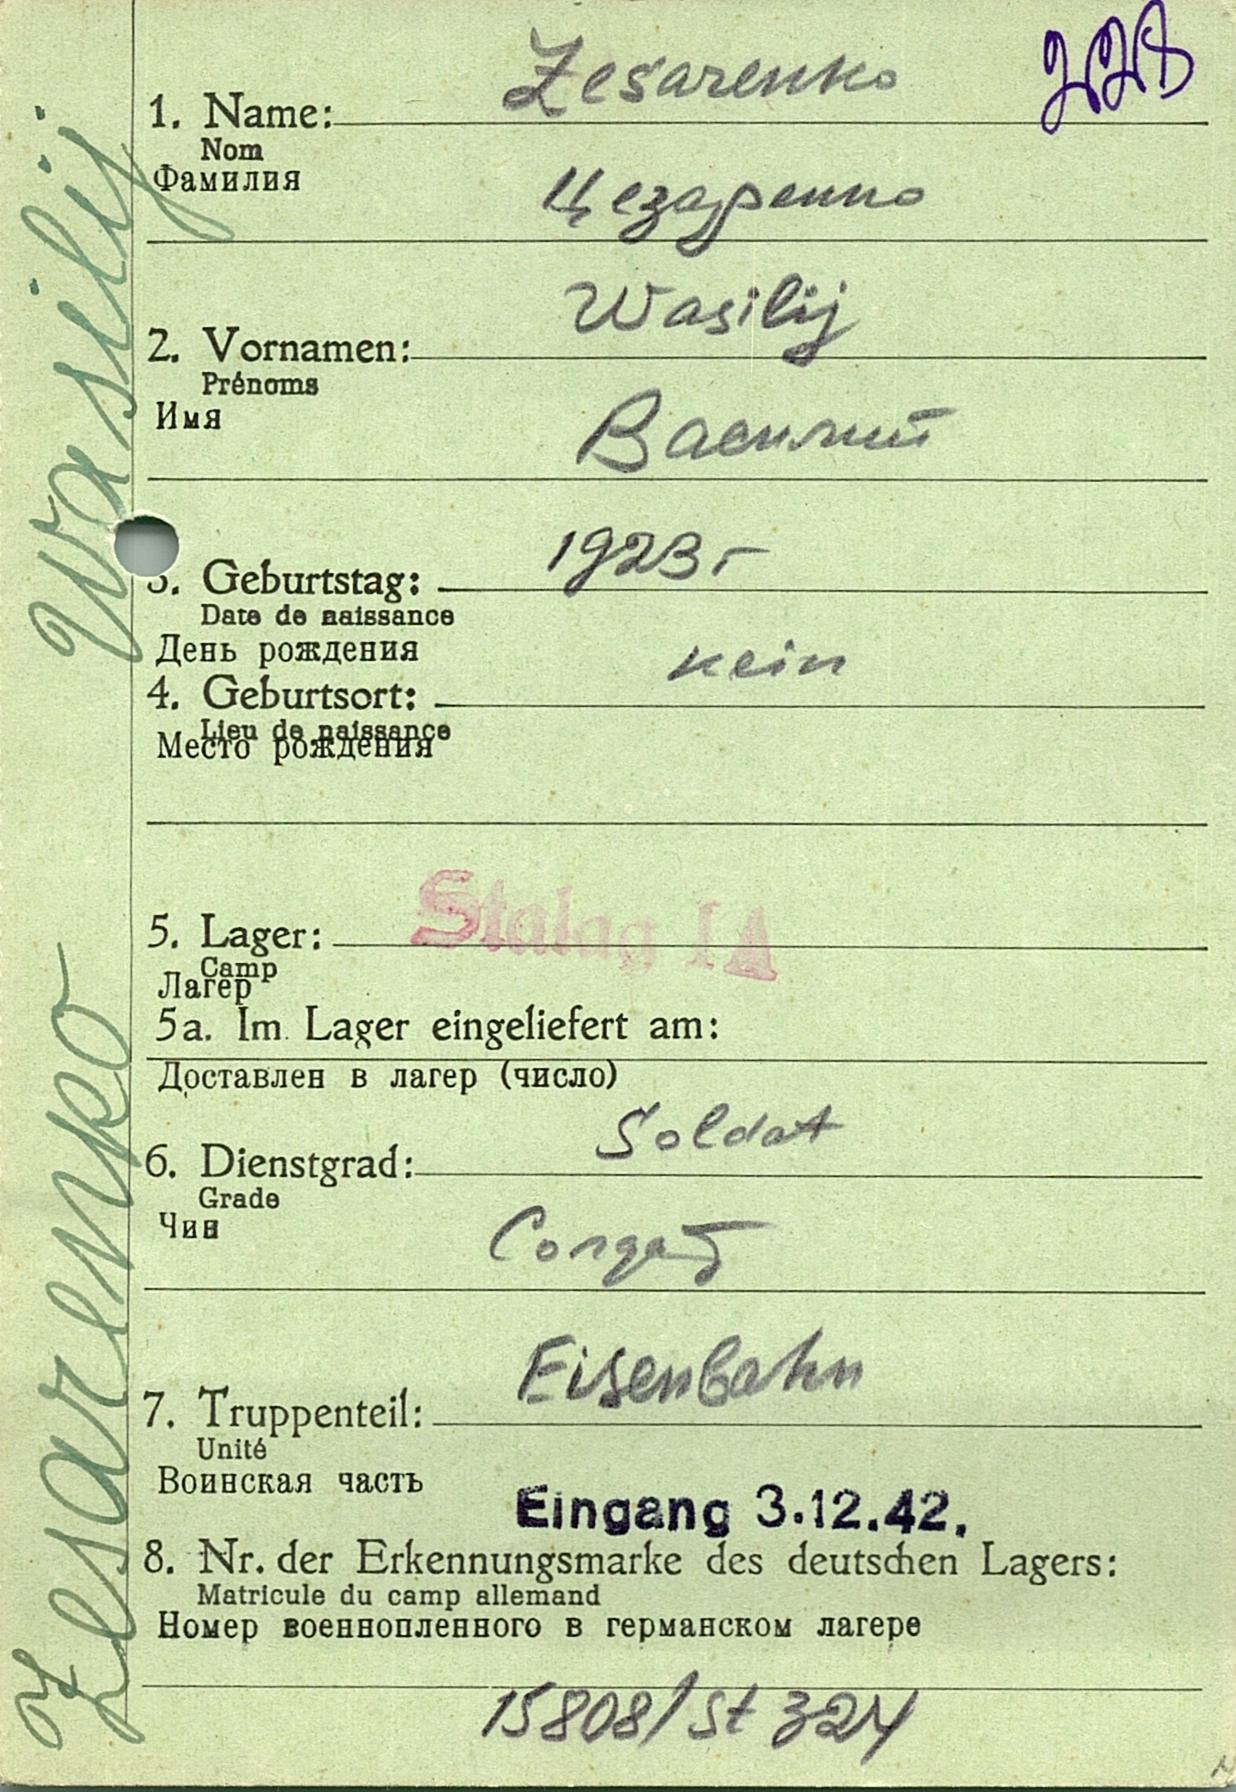 228
Zesarenko
1. Name:
Nom
Фамилия
Цезаренко
Wasilij
2. Vornamen:
Prénoms
Имя
Василий
1923 г
3. Geburtstag:
Date de naissance
День рождения
kein
4. Geburtsort:
Lieu de naissance
Место рождения
Stalag IA
5. Lager:
Camp
Лагер
5a. Im Lager eingeliefert am:
Доставлен в лагер (число)
Soldat
6. Dienstgrad:
Grade
Чин
Солдат
Eisenbahn
7. Truppenteil:
Unité
Воинская часть
Eingang 3.12.42.
8. Nr. der Erkennungsmarke des deutschen Lagers:
Matricule du camp allemand
Номер военнопленного в германском лагере
15808/St 324
Zesarenko Wasilij